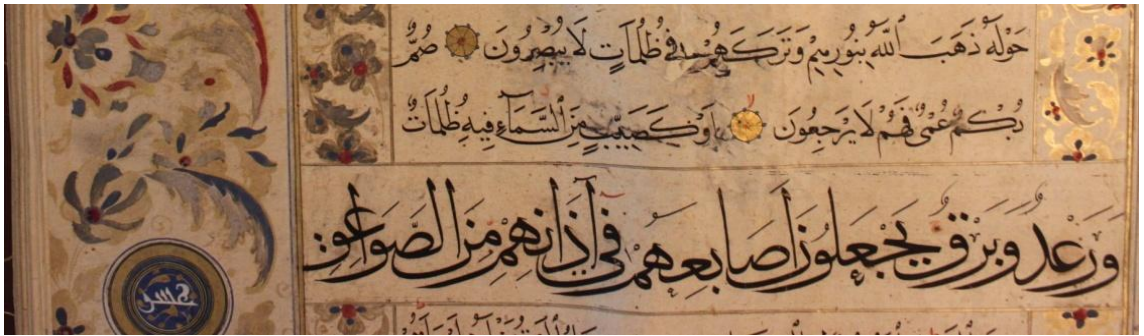 حَوْلَهُ ذَهَبَ ٱللَّهُ بِنُورِهِمْ وَتَرَكَهُمْ فِي ظُلُمَاتٍ لَا يُبْصِرُونَ صُمٌّ
بُكْمٌ عُمْيٌ فَهُمْ لَا يَرْجِعُونَ أَوْ كَصَيِّبٍ مِنَ ٱلسَّمَآءِ فِيهِ ظُلُمَاتٌ
وَرَعْدٌ وَبَرْقٌ يَجْعَلُونَ أَصَابِعَهُمْ فِي آذَانِهِمْ مِنَ الصَّوَاعِقِ
خمس